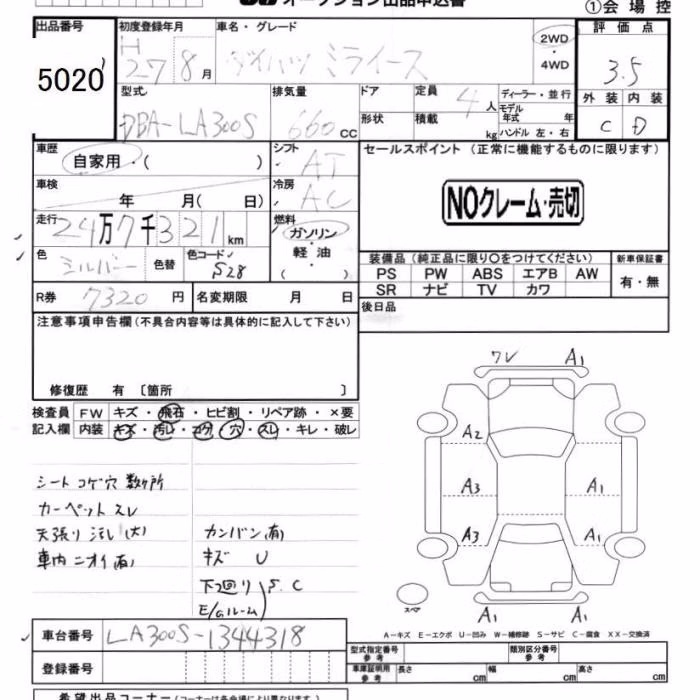 オークション出品申込書
①会場控
出品番号 初度登録年月 車名・グレード 評価点
5020 H 27 8月 ダイハツ ミライース 2WD・4WD 3.5
型式 排気量 ドア 定員 4人 ディーラー・並行 外装 内装
DBA-LA300S 660cc 形状 積載 kg モデル年式 年 ハンドル 左・右 C D
車歴 自家用・( ) シフト AT セールスポイント(正常に機能するものに限ります)
車検 年 月( 日) 冷房 AC NOクレーム・売切
走行 24万7千321km 燃料 ガソリン・軽油・( )
色 シルバー 色替 色コード S28 装備品(純正品に限り○をつけてください) 新車保証書
PS PW ABS エアB AW 有・無
SR ナビ TV カワ
R券 7320円 名変期限 月 日 後日品
注意事項申告欄(不具合内容等は具体的に記入して下さい)
修復歴 有 〔箇所 〕
検査員 FW キズ・飛石・ヒビ割・リペア跡・×要
記入欄 内装 キズ・汚レ・コゲ・穴・スレ・キレ・破レ
シートコゲ穴数ヶ所
カーペットスレ
天張り汚レ(大) カンバン(有)
車内ニオイ(有) キズ U
下廻り S.C
E/gルーム
ワレ A1
A2
A3 A1
A3 A1
スペア
A1 A1
A-キズ E-エクボ U-凹み W-補修跡 S-サビ C-腐食 XX-交換済
車台番号 LA300S-1344318
型式指定番号 参考 類別区分番号 参考
登録番号 車庫証明用 参考 長さ cm 幅 cm 高さ cm
希望出品コーナー(コーナーは各会場により異なります。)